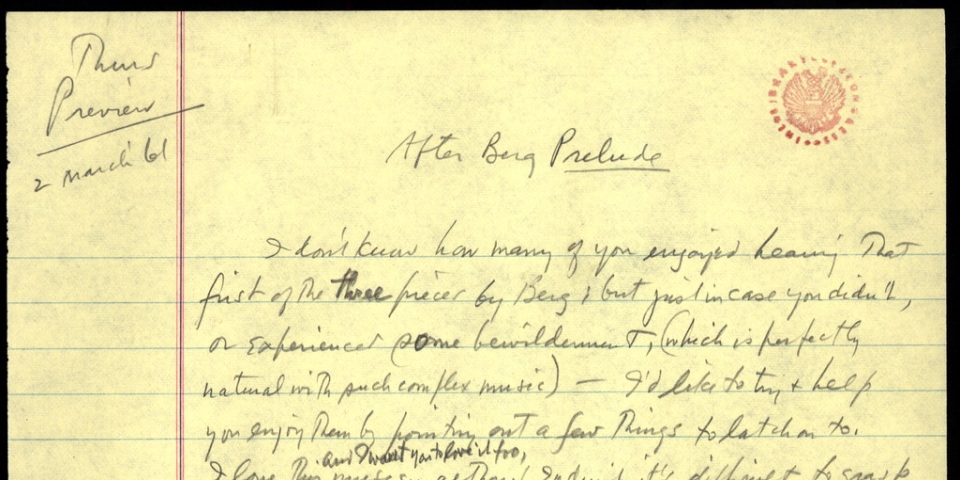 Thurs
Preview
2 march 61
LIBRARY OF CONGRESS
After Berg Prelude
I don't know how many of you enjoyed hearing that
first of the three pieces by Berg; but just in case you didn't,
or experienced some bewilderment, (which is perfectly
natural with such complex music) — I'd like to try + help
you enjoy them by pointing out a few things to latch on to.
and I want you to love it too,
I love this music, although I admit it's difficult to grasp